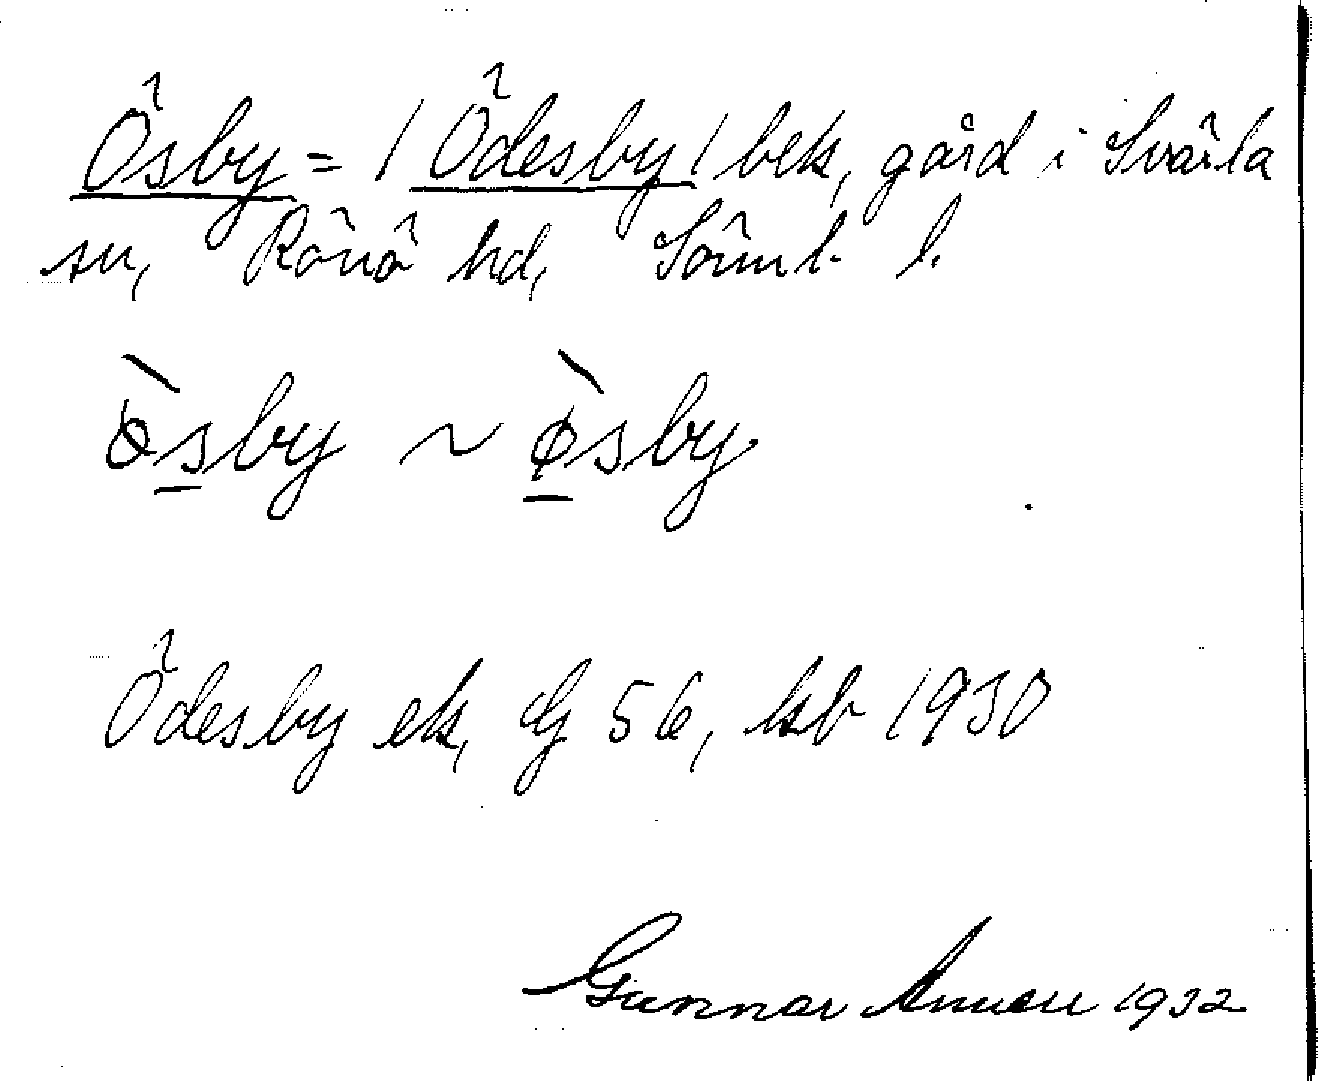 Ösby = ( Ödesby ) bek, gård i Svärta
sn, Rönö hd, Sörml. l.
ȯ̀sby ~ ø̀sby
Ödesby ek, G 56, kb 1930
Gunnar 1932